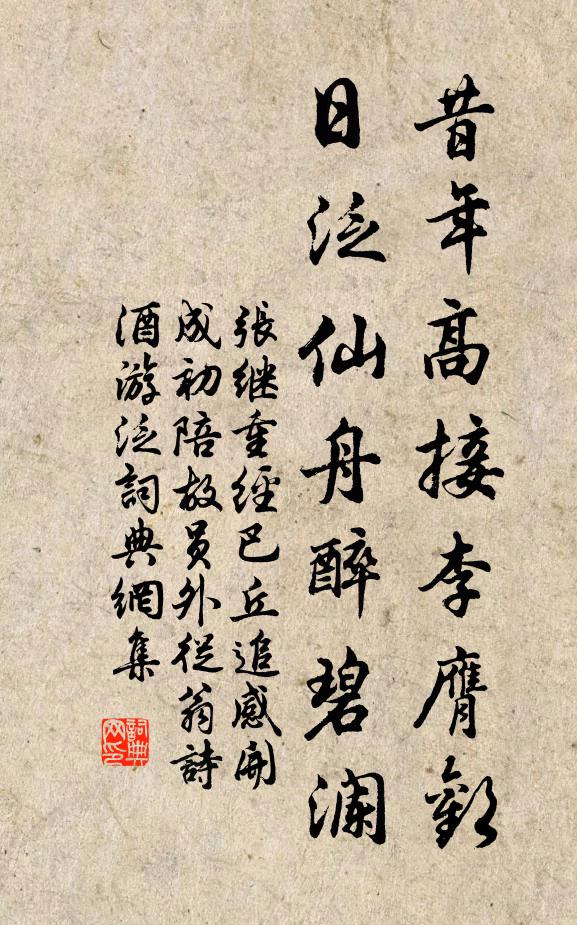 昔年高接李膺歡
日泛仙舟醉碧澜
張继重經巴丘追感開
成初陪故员外從翁詩
酒游泛詞典網集
詞典网印